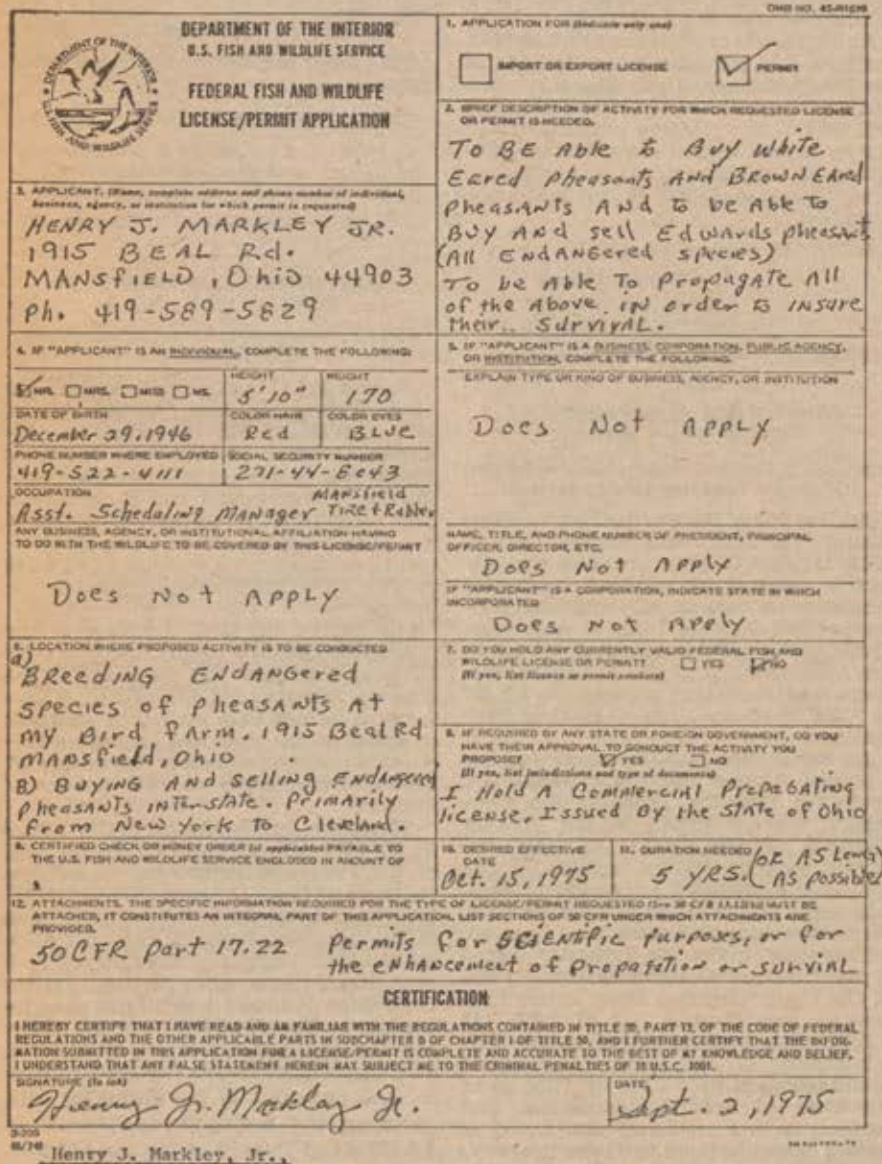 OMB NO. 42-R1670
DEPARTMENT OF THE INTERIOR
U.S. FISH AND WILDLIFE SERVICE
FEDERAL FISH AND WILDLIFE
LICENSE/PERMIT APPLICATION
DEPARTMENT OF THE INTERIOR
U.S. FISH AND WILDLIFE SERVICE
1. APPLICATION FOR (Indicate only one)
IMPORT OR EXPORT LICENSE
PERMIT
2. BRIEF DESCRIPTION OF ACTIVITY FOR WHICH REQUESTED LICENSE
OR PERMIT IS NEEDED.
To BE Able to Buy White
Eared Pheasants And BROWN EAred
Pheasants And to be Able to
BUY And sell Edwards pheasant
(All ENdANGered species)
To be Able To Propagate All
of the Above in order to INsure
their SURVIVAL.
3. APPLICANT. (Name, complete address and phone number of individual,
business, agency, or institution for which permit is requested)
HENRY J. MARKLEY JR.
1915 BEAL Rd.
MANSfIELD, Ohio 44903
Ph. 419-589-5829
4. IF "APPLICANT" IS AN INDIVIDUAL, COMPLETE THE FOLLOWING:
MR. MRS. MISS MS.
HEIGHT
5'10"
WEIGHT
170
DATE OF BIRTH
December 29, 1946
COLOR HAIR
Red
COLOR EYES
BLUE
PHONE NUMBER WHERE EMPLOYED
419-522-4111
SOCIAL SECURITY NUMBER
OCCUPATION
Asst. Scheduling Manager
MANsfield
Tire + Rubber
ANY BUSINESS, AGENCY, OR INSTITUTIONAL AFFILIATION HAVING
TO DO WITH THE WILDLIFE TO BE COVERED BY THIS LICENSE/PERMIT
Does Not APPLY
5. IF "APPLICANT" IS A BUSINESS, CORPORATION, PUBLIC AGENCY,
OR INSTITUTION, COMPLETE THE FOLLOWING:
EXPLAIN TYPE OR KIND OF BUSINESS, AGENCY, OR INSTITUTION
Does Not APPLY
NAME, TITLE, AND PHONE NUMBER OF PRESIDENT, PRINCIPAL
OFFICER, DIRECTOR, ETC.
Does Not APPly
IF "APPLICANT" IS A CORPORATION, INDICATE STATE IN WHICH
INCORPORATED
Does Not APPly
6. LOCATION WHERE PROPOSED ACTIVITY IS TO BE CONDUCTED
a)
BReeding ENdANGered
species of Pheasants At
my Bird fArm. 1915 Beal Rd
MANsfield, Ohio
B) BUYING AND Selling ENdANGered
Pheasants INterstate. Primarily
from New York to Cleveland.
7. DO YOU HOLD ANY CURRENTLY VALID FEDERAL FISH AND
WILDLIFE LICENSE OR PERMIT? YES NO
(If yes, list license or permit numbers)
8. IF REQUIRED BY ANY STATE OR FOREIGN GOVERNMENT, DO YOU
HAVE THEIR APPROVAL TO CONDUCT THE ACTIVITY YOU
PROPOSE? YES NO
(If yes, list jurisdictions and type of documents)
I Hold A Commercial PropaGating
license, Issued By the State of Ohio
9. CERTIFIED CHECK OR MONEY ORDER (if applicable) PAYABLE TO
THE U.S. FISH AND WILDLIFE SERVICE ENCLOSED IN AMOUNT OF
$
10. DESIRED EFFECTIVE
DATE
Oct. 15, 1975
11. DURATION NEEDED
5 YRS. (OR AS Long
AS possible)
12. ATTACHMENTS. THE SPECIFIC INFORMATION REQUIRED FOR THE TYPE OF LICENSE/PERMIT REQUESTED (See 50 CFR 13.12(b)) MUST BE
ATTACHED, IT CONSTITUTES AN INTEGRAL PART OF THIS APPLICATION. LIST SECTIONS OF 50 CFR UNDER WHICH ATTACHMENTS ARE
PROVIDED.
50 CFR Part 17.22 Permits for SCIENTific Purposes, or for
the eNhancement of Propagation or survial
CERTIFICATION
I HEREBY CERTIFY THAT I HAVE READ AND AM FAMILIAR WITH THE REGULATIONS CONTAINED IN TITLE 50, PART 13, OF THE CODE OF FEDERAL
REGULATIONS AND THE OTHER APPLICABLE PARTS IN SUBCHAPTER B OF CHAPTER I OF TITLE 50, AND I FURTHER CERTIFY THAT THE INFOR-
MATION SUBMITTED IN THIS APPLICATION FOR A LICENSE/PERMIT IS COMPLETE AND ACCURATE TO THE BEST OF MY KNOWLEDGE AND BELIEF.
I UNDERSTAND THAT ANY FALSE STATEMENT HEREIN MAY SUBJECT ME TO THE CRIMINAL PENALTIES OF 18 U.S.C. 1001.
SIGNATURE (In ink)
Henry J. Markley Jr.
DATE
Sept. 2, 1975
3-200
Henry J. Markley, Jr.,